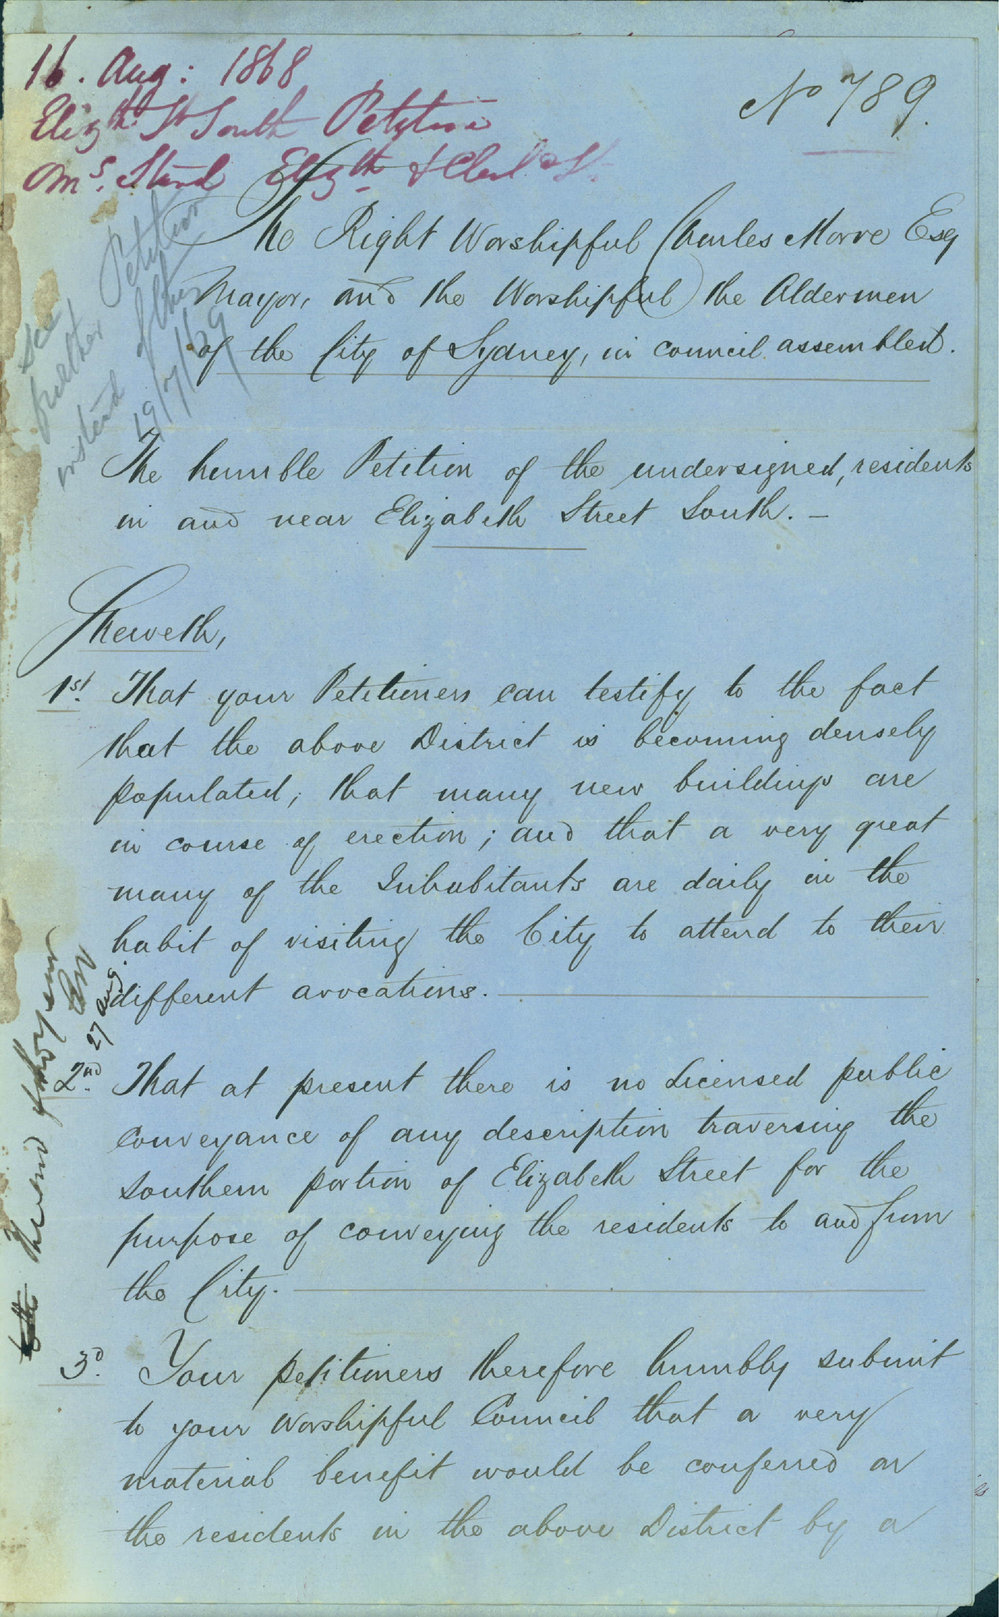 16. Aug: 1868
No 789.
Elizth St South Petition
Oms. Stand Elizth & Clevd St.
See
further Petition
instead of this
19/7/69
The Right Worshipful Charles Moore Esq
Mayor, and the Worshipful the Aldermen
of the City of Sydney, in council assembled.
The humble Petition of the undersigned, residents
in and near Elizabeth Street South. —
Sheweth,
1st. That your Petitioners can testify to the fact
that the above District is becoming densely
populated; that many new buildings are
in course of erection; and that a very great
many of the Inhabitants are daily in the
habit of visiting the City to attend to their
different avocations.
27 Aug.
2nd. That at present there is no Licensed public
Conveyance of any description traversing the
southern portion of Elizabeth Street for the
purpose of conveying the residents to and from
the City.
3d. Your petitioners therefore humbly submit
to your Worshipful Council that a very
material benefit would be conferred on
the residents in the above District by a